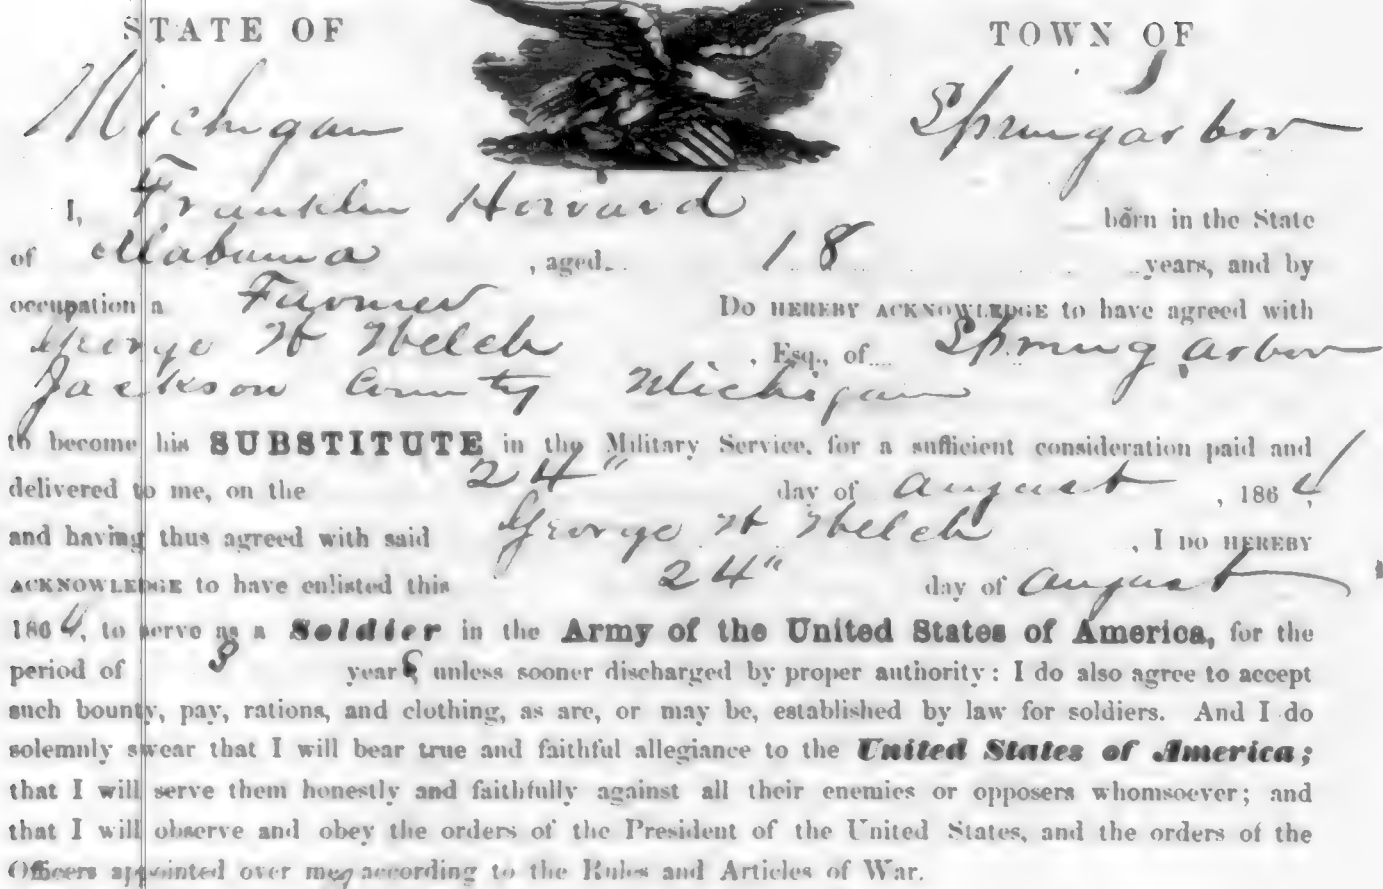 STATE OF
TOWN OF
Michigan
Springarbor
I, Franklin Howard born in the State
of Alabama , aged 18 years, and by
occupation a Farmer DO HEREBY ACKNOWLEDGE to have agreed with
George W Welch , Esq., of Spring arbor
Jackson County Michigan
to become his SUBSTITUTE in the Military Service, for a sufficient consideration paid and
delivered to me, on the 24" day of august , 1864,
and having thus agreed with said George W Welch , I DO HEREBY
ACKNOWLEDGE to have enlisted this 24" day of august
1864, to serve as a Soldier in the Army of the United States of America, for the
period of 3 years, unless sooner discharged by proper authority: I do also agree to accept
such bounty, pay, rations, and clothing, as are, or may be, established by law for soldiers. And I do
solemnly swear that I will bear true and faithful allegiance to the United States of America;
that I will serve them honestly and faithfully against all their enemies or opposers whomsoever; and
that I will observe and obey the orders of the President of the United States, and the orders of the
Officers appointed over me, according to the Rules and Articles of War.